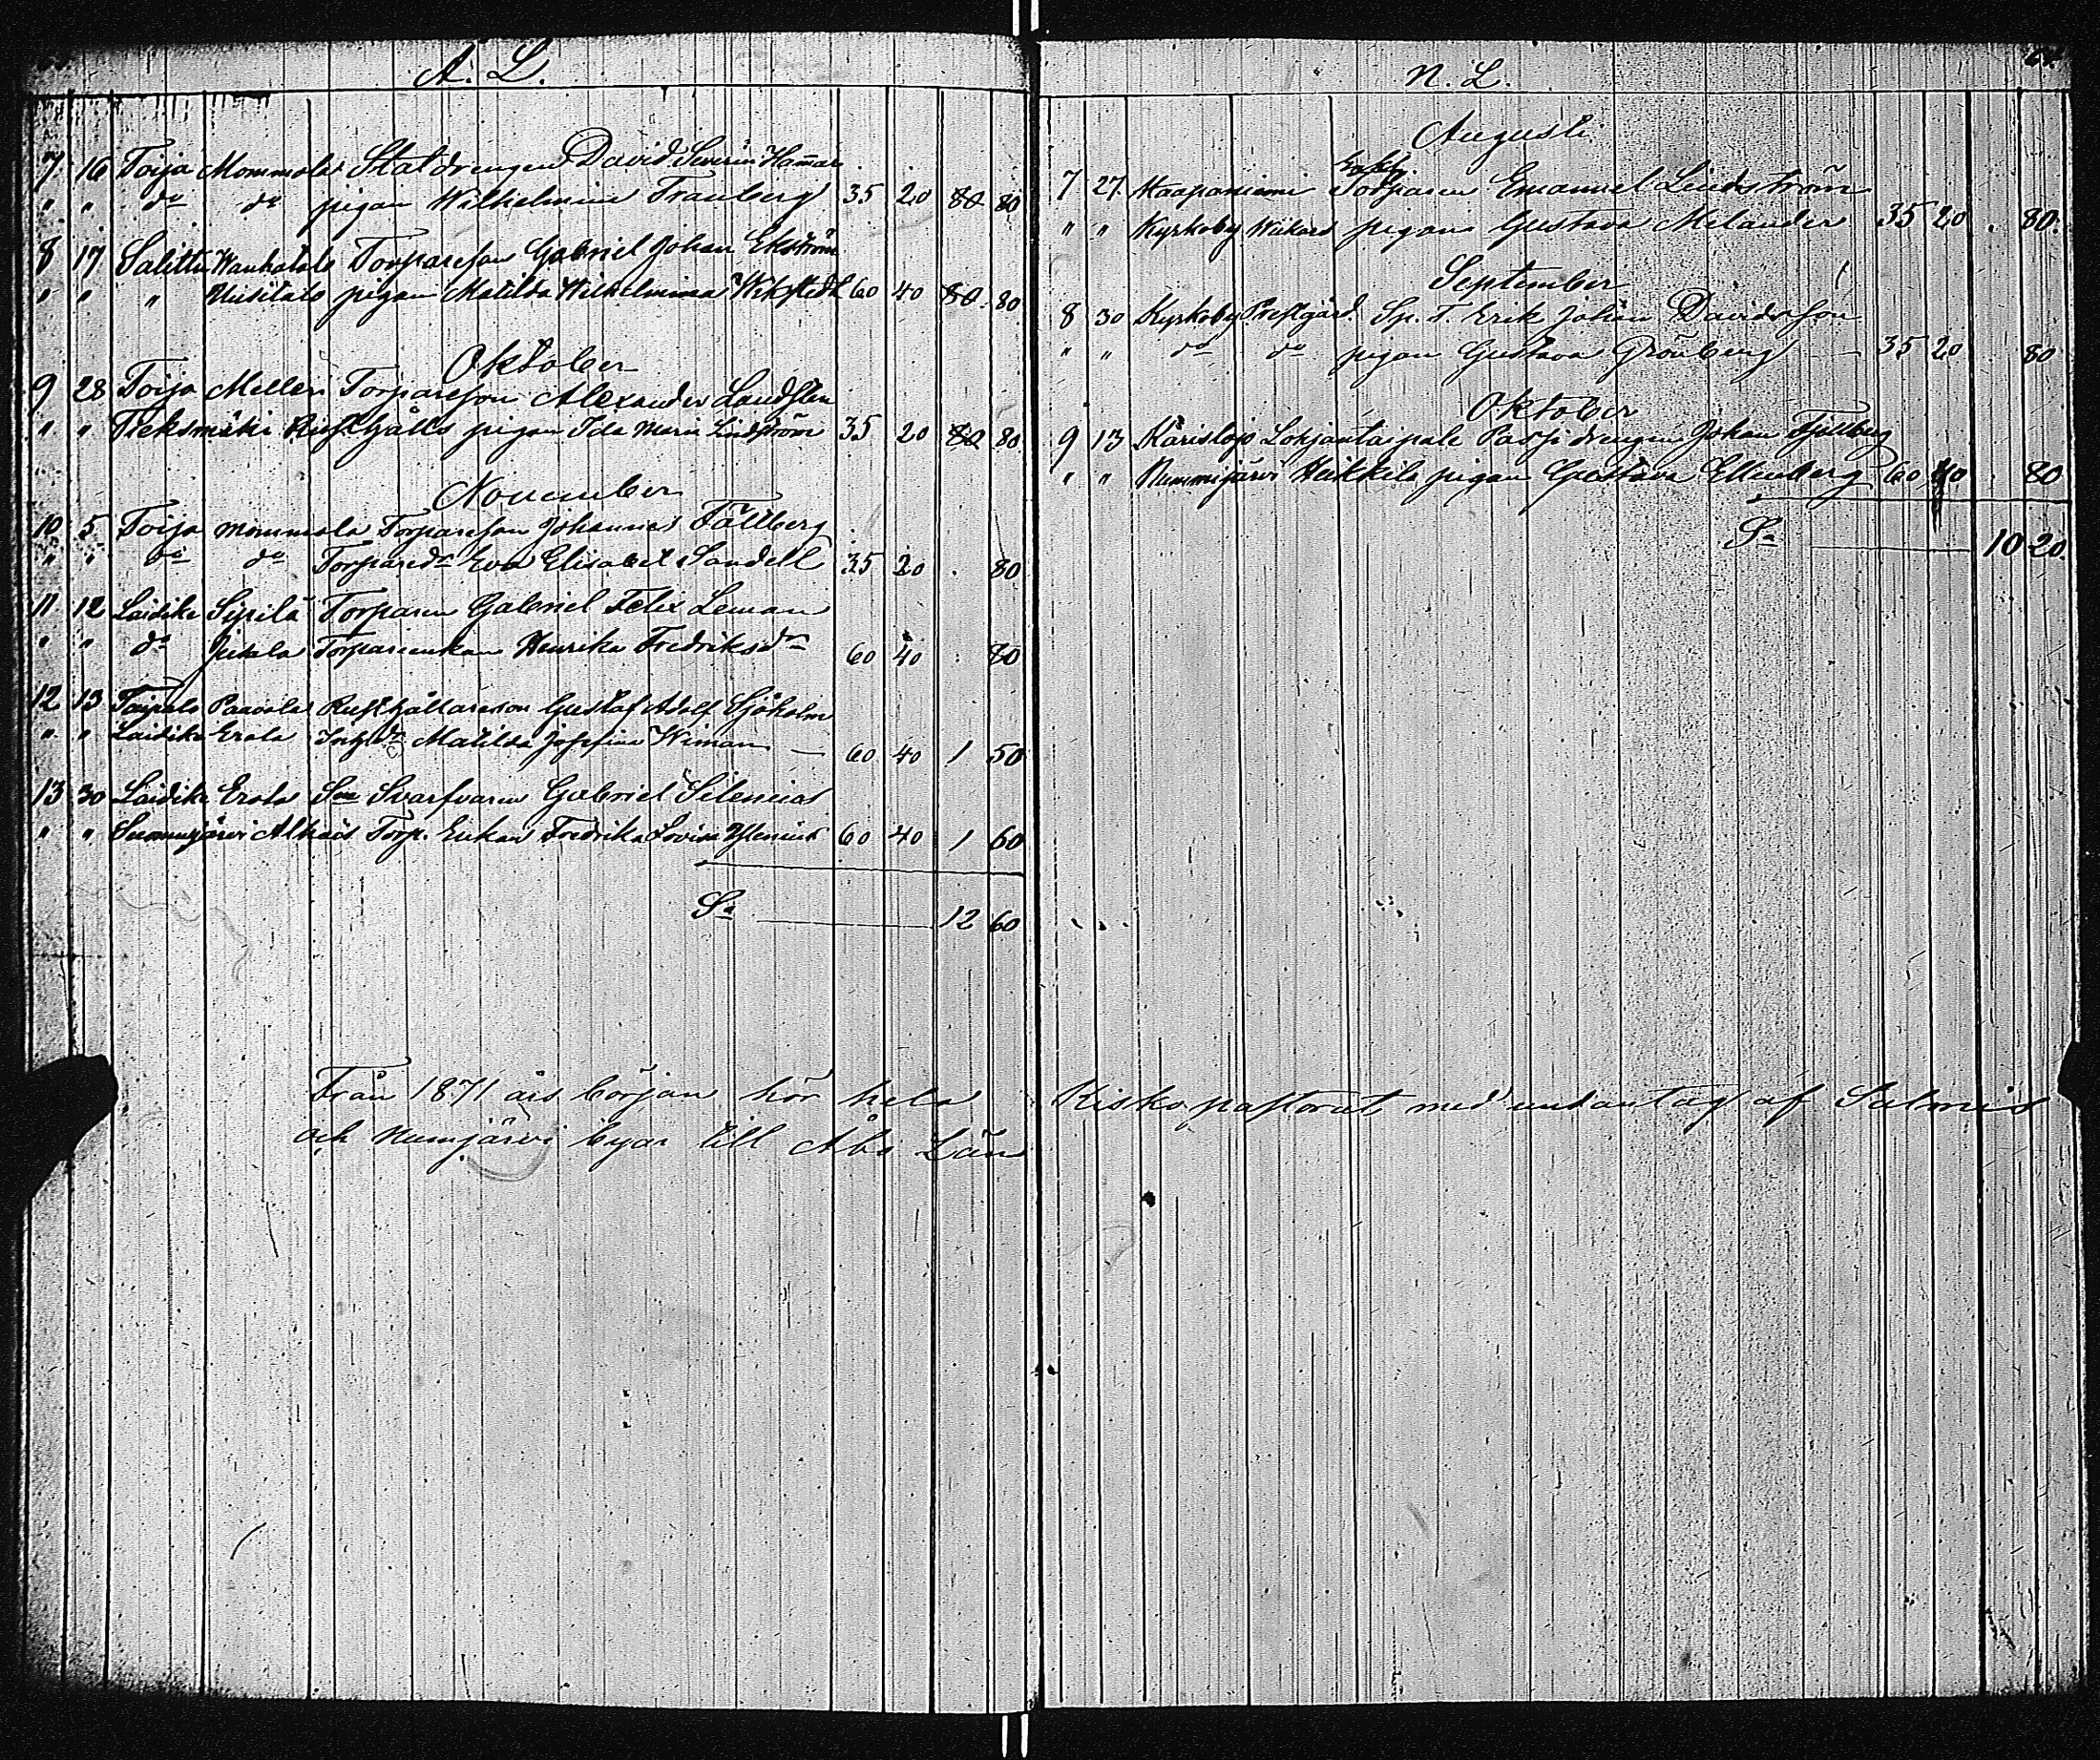 A. L.
7 16 Toija Mommola Statdrengen David Severin Hamar
" " do do pigan Wilhelmina Tranberg 35 20 80 80
8 17 Salittu Wanhatalo Torpareson Gabriel Johan Ekström
" " " Uusitalo pigan Matilda Wilhelmina Wikstedt 60 40 80 80
Oktober
9 28 Toija Melleri Torpareson Alexander Landsten
" " Pieksmäki pigan Ida Maria Lindström 35 20 80 80
November
10 5 Toija Mommola Torpareson Johannes Fällberg
" " do do Torparedr Eva Elisabet Sandell 35 20 . 80
11 12 Laidike Sipilä Torparen Gabriel Felix Leman
" " do Torpareenkan Henrika Fredriksdr 60 40 . 80
12 13 Taipale Paavola Rusthållareson Gustaf Adolf Sjöholm
" " Laidike Erola Matilda Josefina Wiman 60 40 1 50
13 30 Laidike Erola Svarfvaren Gabriel Silenius
" " Suomusjärvi Torp. Enkan Fredrika Lovisa 60 40 1 60
Sa 12 60
Från 1871 års början hör hela Kisko pastorat med undantag af Salmis
och Kurnjärvi byar till Åbo Län
N. L.
Augusti
7 27 Haapaniemi Enkl. Torparen Emanuel Lindström
" " Kyrkoby Wikars pigan Gustava Melander 35 20 . 80
September
8 30 Kyrkoby Prestgård Sp. T. Erik Johan Davidsson
" " do do pigan Gustava Grönberg 35 20 80
Oktober
9 13 Karislojo Lohjantaipale drengen Johan Fjellberg
" " Nummijärvi Heikkilä pigan Gustava Ellenberg 60 40 . 80
Sa 10 20